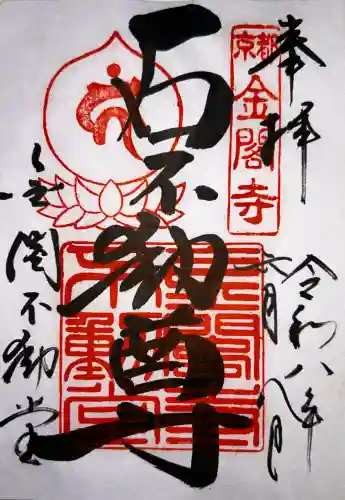 奉拝
京都
金閣寺
令和八年
六月八日
石不動尊
金閣不動堂